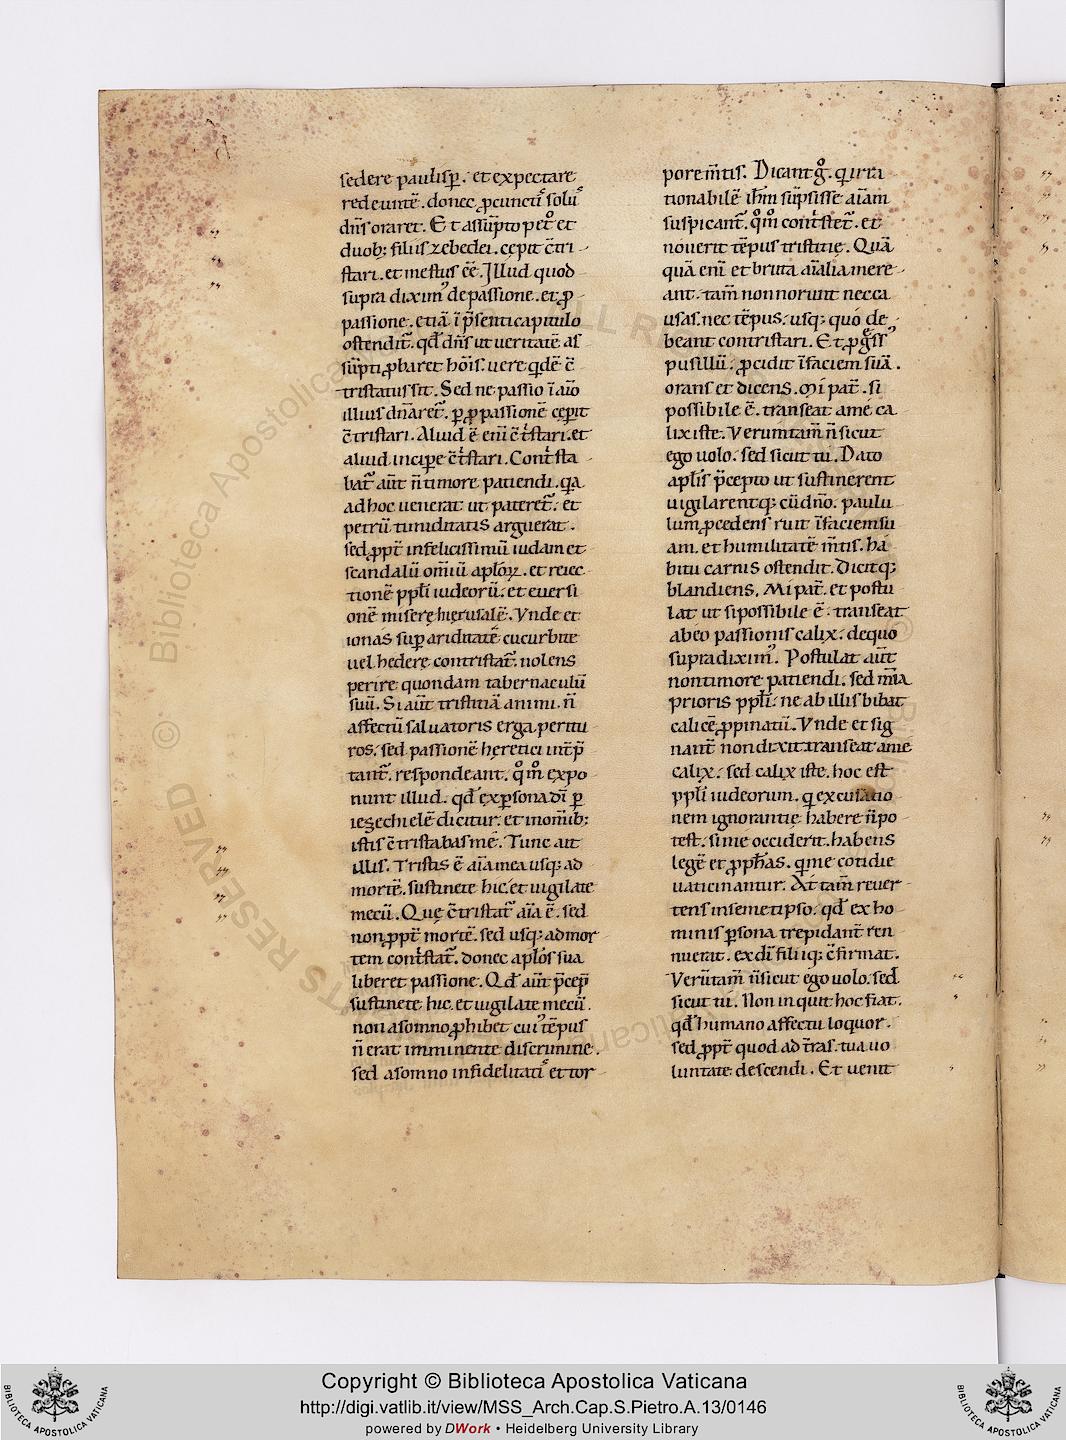 sedere paulisp̄. et expectare
redeuntē. donec ꝓcunctiˢ solū
dn̄s oraret. Et assūpto pet̊ et
duob; filiis zebedei. cępit c̄tri
stari. et mestus ēē. Illud quod
supra diximꝰ de passione. et ꝓ
passione. etiā ī p̄senti capitulo
ostendit᷑. qd̄ dn̄s ut ueritatē as
sūpti ꝓbaret hoīs. uere qⁱdē c̄
tristatus sit. Sed ne passio ī aīo
illius dn̄aret᷑. ꝑ ꝓpassionē cępit
c̄tristari. Aliud ē enī c̄tⁱstari. et
aliud incipe c̄tⁱstari. Contⁱsta
bat᷑ aūt n̄ timore patiendi. qa
ad hoc uenerat ut pateret᷑. et
petrū timiditatis arguerat.
sed ꝓpt̄ infelicissimū iudam et
scandalū om̄iū aplo᷑ꝝ. et reiec
tionē ppl̄i iudeorū. et euersi
onē miserę hierusalē. Vnde et
ionas sup ariditatē cucurbite
uel hederę contristat᷑. nolens
perire quondam tabernaculū
suū. Si aūt tristitiā animi. n̄
affectū saluatoris erga peritu
ros. sed passionē heretici int̄p̄
tant᷑. respondeant. qm̊ expo
nunt illud. qd̄ ex psona dī ꝑ
iezechielē dicitur. et in omīb;
istis c̄tristabas me. Tunc ait
illis. Tristis ē aīa mea usq; ad
mortē. sustinete hic. et uigilate
mecū. Quę c̄tristat᷑ aīa ē. sed
non ꝓpt̄ mortē. sed usq; ad mor
tem contⁱstat᷑. donec aplōs sua
liberet passione. Qd̄ aūt p̄cep̄
sustinete hic. et uigilate mecū.
non a somno ꝓhibet cuiꝰ tēpus
n̄ erat imminente discrimine.
sed a somno infidelitatiˢ et tor
pore m̄tis. Dicant g̊. qⁱ irra
tionabilē ih̄m sūpsisse aīam
suspicant᷑. qm̊ contⁱstet᷑. et
nouerit tēpus tristitię. Quā
quā enī et bruta aīalia mere
ant. tam̄ non norunt nec ca
usas. nec tēpus. usq; quo de
beant contristari. Et ꝓgˢsꝰ
pusillū. ꝓcidit ī faciem suā.
orans et dicens. Mi pat᷑. si
possibile ē. transeat a me ca
lix iste. Verumtam̄ n̄ sicut
ego uolo. sed sicut tu. Dato
apl̄is p̄cepto ut sustinerent
uigilarentq; cū dn̄o. paulu
lum ꝓcedens ruit ī faciem su
am. et humilitatē m̄tis. ha
bitu carnis ostendit. Dicitq;
blandiens. Mi pat᷑. et postu
lat ut si possibile ē. transeat
ab eo passionis calix. de quo
supra diximꝰ. Postulat aūt
non timore patiendi. sed mīa
prioris ppl̄i. ne ab illis bibat
calicē ꝓpinatū. Vnde et sig
nant᷑ non dixit transeat a me
calix. sed calix iste. hoc est
ppl̄i iudeorum. qⁱ excusatio
nem ignorantię habere n̄ po
test. si me occiderit. habens
legē et ꝓph̄as. qⁱ me cotidie
uaticinantur. At tam̄ reuer
tens in semetipso. qd̄ ex ho
minis psona trepidant᷑ ren
nuerat. ex dī filiiq; c̄firmat.
Verūtam̄ n̄ sicut ego uolo. sed
sicut tu. Non inquit hoc fiat.
qd̄ humano affectu loquor.
sed ꝓpt̄ quod ad t̄ras. tua uo
luntate descendi. Et uenit
Copyright © Biblioteca Apostolica Vaticana
http://digi.vatlib.it/view/MSS_Arch.Cap.S.Pietro.A.13/0146
powered by DWork • Heidelberg University Library